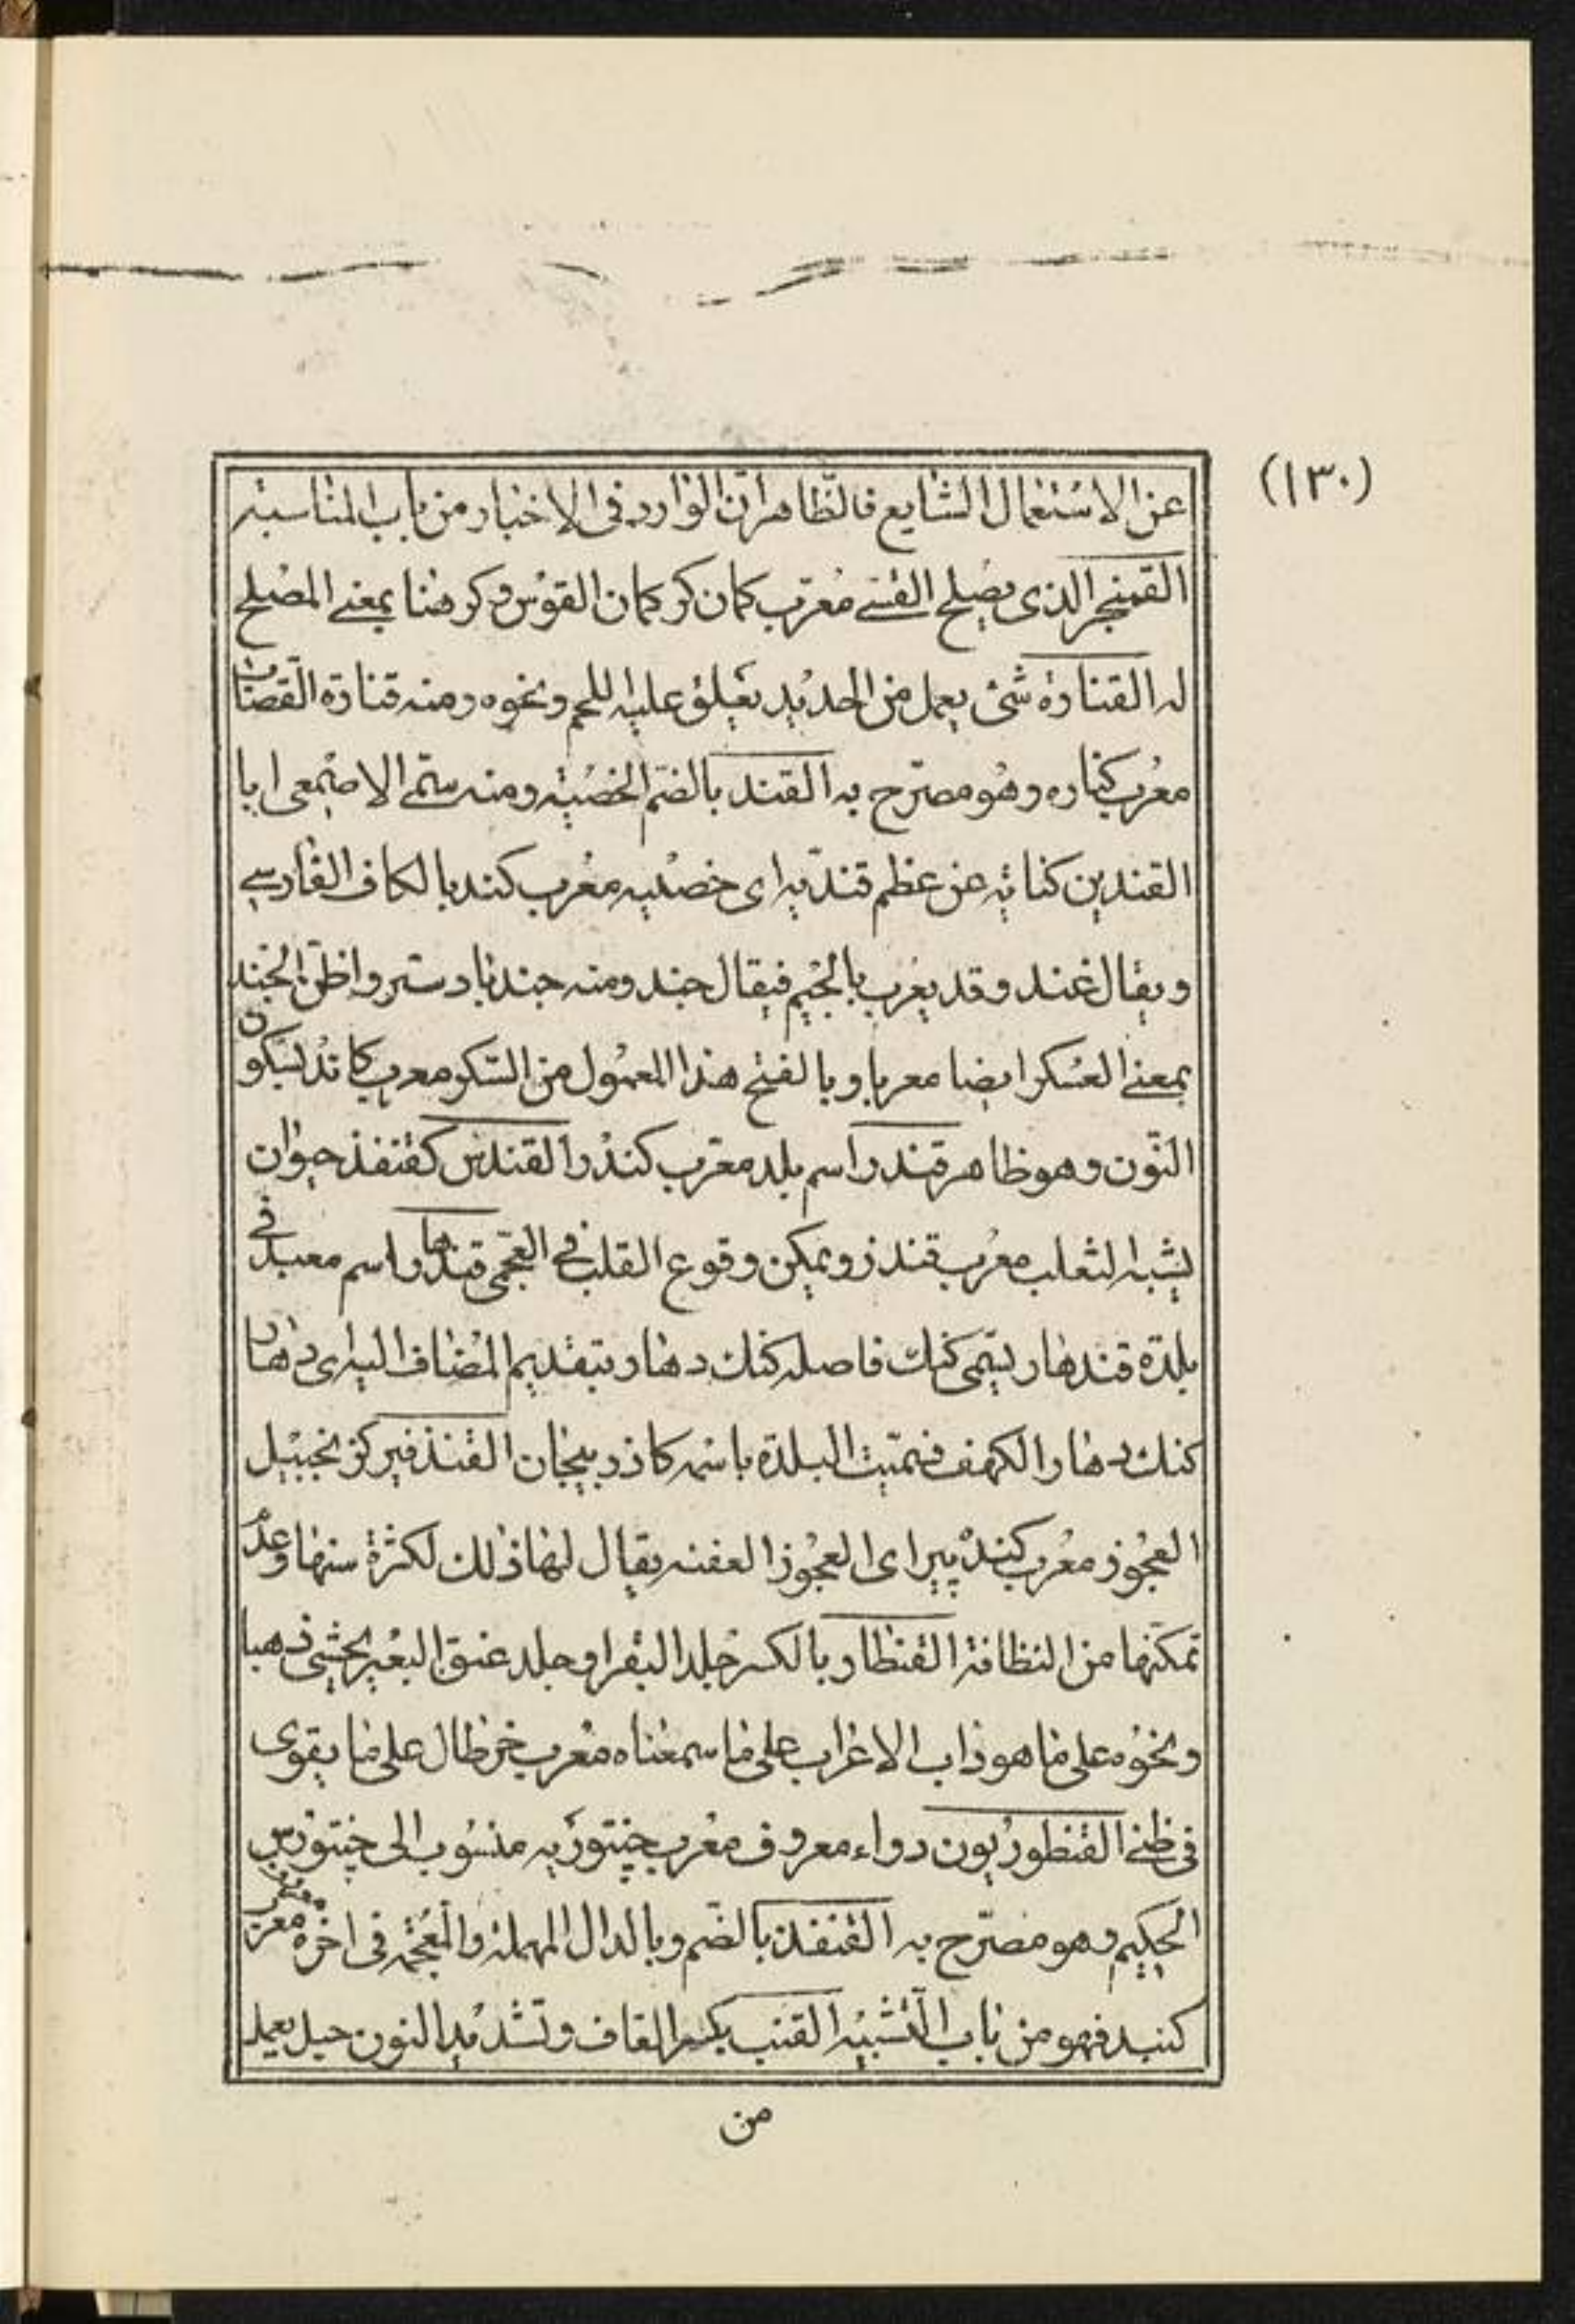 (١٣٠)
عن الاستعمال الشايع فالظاهر ان الوارد فى الاخبار من باب المناسبة
القمنجر الذى يصلح القسے معرّب كمان كر كمان القوس و كر هنا بمعنے المصلح
له القنارة شئ يعمل من الحديد يعلق عليه اللحم و نحوه و منه قنارة القصاب
معرب كناره و هو مصرّح به القند بالضم الخصية و منه سمّے الاصمعى ابا
القندين كناية عن عظم قنديه اى خصيه معرب كند بالكاف الفارسے
و يقال غند و قد يعرب بالجيم فيقال جند و منه جند بادستر و اظن الجند
بمعنے العسكر ايضا معربا و بالفتح هذا المعمول من السكر معرب كاند بسكون
النّون و هو ظاهر قندر اسم بلد معرّب كندر القندس كقنفذ حيوان
يشبه الثعلب معرب قندز و يمكن وقوع القلب فے العجمى قندهار اسم معبد فے
بلدة قندهار يسمّى كنك فاصله كنك دهار بتقديم المضاف اليه اى دهار
كنك دهار الكهف فسمّيت البلدة باسمه كاذربيجان القنذفير كزنجبيل
العجوز معرب كنده پير اى العجوز العفنه يقال لها ذلك لكثرة سنها و عدم
تمكّنها من النظافة القنطار بالكسر جلد البقر او جلد عنق البعير يحشى ذهبا
و نحوه على ما هو داب الاعراب على ما سمعناه معرب خرطال على ما يقوى
فى ظنے القنطوريون دواء معروف معرب جنتوريه منسوب الى جنتورس
الحكيم و هو مصرّح به القنفذ بالضّم و بالدال المهملة و المعجمة فى اخره معرب
كنبد فهو من باب التشبيه القنب بكسر القاف و تشديد النون حبل يعمل
من